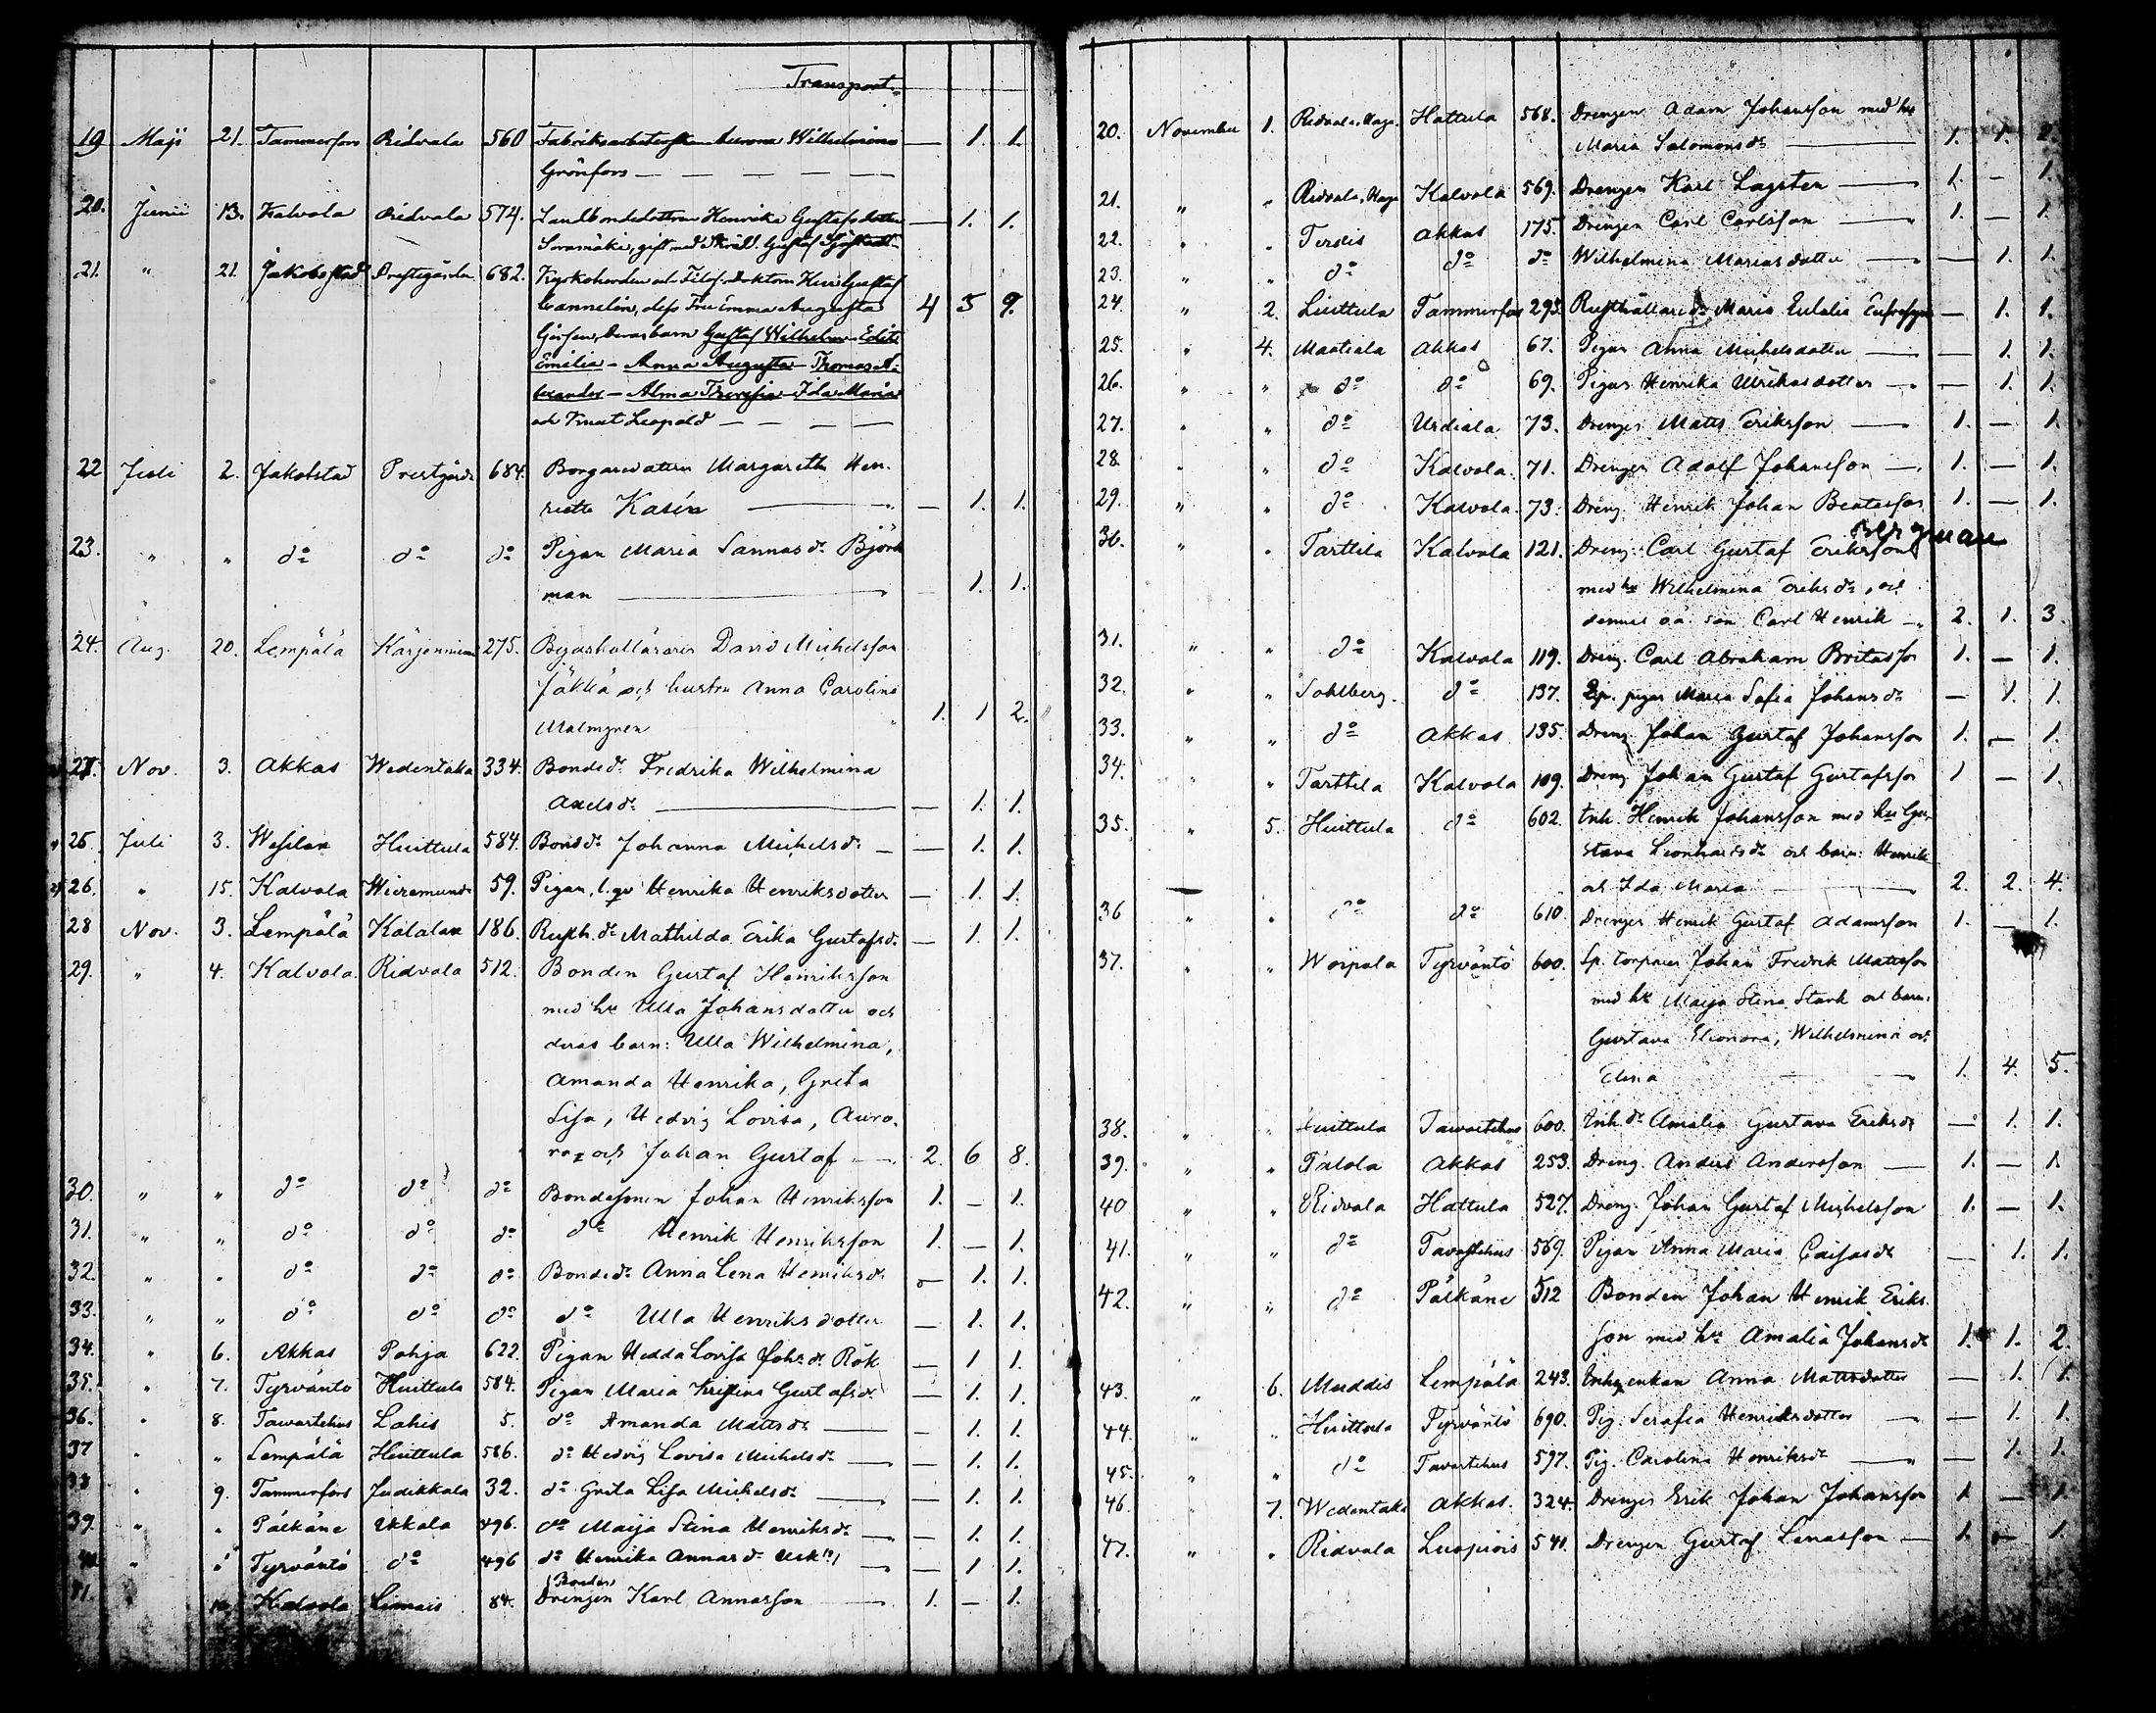 Transport
19 Maji 21. Tammerfors Ridvala 560 Fabriksarbeterskan Aurora Wilhelmina — 1. 1.
Grönfors — — — — —
20. Junii 13. Kalvola Ridvala 574. Landbondedottren Henrika Gustafsdotter — 1. 1.
Soramäki, gift med Gustaf
21. " 21. Jakobstad Prestgården 682. Kyrkoherden och Filos. Doktorn Herr Gustaf
Cannelin, dess Fru Emma Augusta 4 5 9.
deras barn Gustaf Wilhelm - Edit
Emilia - Anna Augusta - Thomas A-
lexander - Alma Theresia - Ida Maria
och Knut Leopold — — — —
22 Juli 2. Jakobstad Prestgård. 684. Borgaredottern Margaretha Hen-
riette — 1. 1.
23. " " do do do Pigan Maria Sannas dr Björk
man — 1. 1.
24. Aug. 20. Lempälä Kärjenniemi 275. Byaskolläraren David Michelsson
Jäkkä och hustru Anna Carolina
Malmgren 1. 1 2.
27. Nov. 3. Akkas Wedentaka 334. Bonde dr Fredrika Wilhelmina
Axels dr — 1. 1.
25. Juli 3. Wesilax Huittula 584. Bond dr Johanna Michels dr — — 1. 1.
26. " 15. Kalvola 59. Pigan, Henrika Henriksdotter — 1. 1.
28 Nov. 3. Lempälä 186. Rusth. dr Mathilda Erika Gustafs dr — 1. 1.
29. " 4. Kalvola Ridvala 512. Bonden Gustaf Henriksson
med hu Ulla Johansdotter och
deras barn: Ulla Wilhelmina,
Amanda Henrika, Greta
Lisa, Hedvig Lovisa, Auro-
ra och Johan Gustaf — 2. 6 8.
30. " " do do do Bondesonen Johan Henriksson 1. — 1.
31. " " do do do do Henrik Henriksson 1. — 1.
32. " " do do do Bonde dr Anna Lena Henriks dr — 1. 1.
33. " " do do do do Ulla Henriksdotter — 1. 1.
34. " 6. Akkas Pohja 622. Pigan Hedda Lovisa Johs dr Rök — 1 1.
35. " 7. Tyrväntö Huittula 584. Pigan Maria Kristina Gustafs dr — 1. 1.
36. " 8. Tawastehus Lahis 5. do Amanda Matts dr — — 1. 1.
37 " " Lempälä Huittula 586. do Hedvig Lovisa Michels dr — — 1. 1.
38 " 9. Tammerfors Judikkala 32. do Greta Lisa Michels dr — — 1. 1.
39. " " Pälkäne Ukkala 496. do Maija Stina Henriks dr — — 1. 1.
40 " " Tyrväntö do 496 do Henrika Annas dr — — 1 1.
(Bonden)
41. 10. Kalvola Limais 84. Drengen Karl Annasson — 1. — 1.
20. November 1. Ridvala, Haga. Hattula 568. Drengen Adam Johansson med hu
Maria Salomons dr — 1. 1. 2.
21. " " Ridvala, Haga Kalvola 569. Drengen Karl Lagsten — 1. — 1.
22. " " Tersis Akkas 175. Drengen Carl Carlsson — 1. — 1.
23. " " do do do Wilhelmina Mariasdotter — — 1. 1.
24. " 2. Liuttula Tammerfors 293. Rusthållare dr Maria Eulalia — 1. 1.
25. " 4. Maatiala Akkas 67. Pigan Anna Michelsdotter — — 1. 1.
26. " " do do 69. Pigan Henrika Ulrikasdotter — — 1. 1.
27. " " do Urdiala 73. Drengen Matts Eriksson — 1. — 1.
28. " " do Kalvola. 71. Drengen Adolf Johansson — 1. — 1.
29. " " do Kalvola. 73. Dreng. Henrik Johan Beatasson 1. — 1.
Bergman
30. " " Tarttila Kalvola 121. Dreng. Carl Gustaf Eriksson
med hu Wilhelmina Eriks dr, och
dennes oä. son Carl Henrik — 2. 1. 3.
31. " " do Kalvola 119. Dreng. Carl Abraham Britasson 1. — 1.
32. " " Sohlberg. do 137. pigan Maria Sofia Johans dr — 1. 1.
33. " " do Akkas 135 Dreng Johan Gustaf Johansson 1. — 1.
34. " " Tarttila Kalvola 109. Dreng Johan Gustaf Gustafsson 1 — 1.
35. " 5. Huittula do 602. Inh. Henrik Johansson med hu Gus-
tava Leonhards dr och barn: Henrik
och Ida Maria — 2. 2. 4.
36 " " do do 610. Drengen Henrik Gustaf Adamsson 1. — 1.
37. " " Woipala Tyrväntö 600. Sp. torparen Johan Fredrik Mattsson
med hu Maija Stina Stark och barn:
Gustava Eleonora, Wilhelmina och
Elina — 1. 4. 5.
38. " " Huittula Tawastehus 600. Inh. dr Amalia Gustava Eriks dr — 1. 1.
39. " " Palola Akkas 253. Dreng. Anders Andersson — 1. — 1.
40 " " Ridvala Hattula 527. Dreng. Johan Gustaf Michelsson 1. — 1.
41. " " do Tavastehus 569. Pigan Anna Maria Caisas dr — 1. 1.
42. " " do Pälkäne 512 Bonden Johan Henrik Eriks-
son med hu Amalia Johans dr 1. 1. 2.
43. " 6. Muddis Lempälä 243. Inh. enkan Anna Mattsdotter — 1. 1.
44. " " Huittula Tyrväntö 690. Pig. Serafia Henriksdotter — — 1. 1.
45. " " do Tavastehus 597. Pig. Carolina Henriks dr — — 1. 1.
46. " 7. Wedentaka Akkas. 324. Drengen Erik Johan Johansson 1 — 1.
47. " " Ridvala Luopiois 541. Drengen Gustaf Lenasson — 1. — 1.